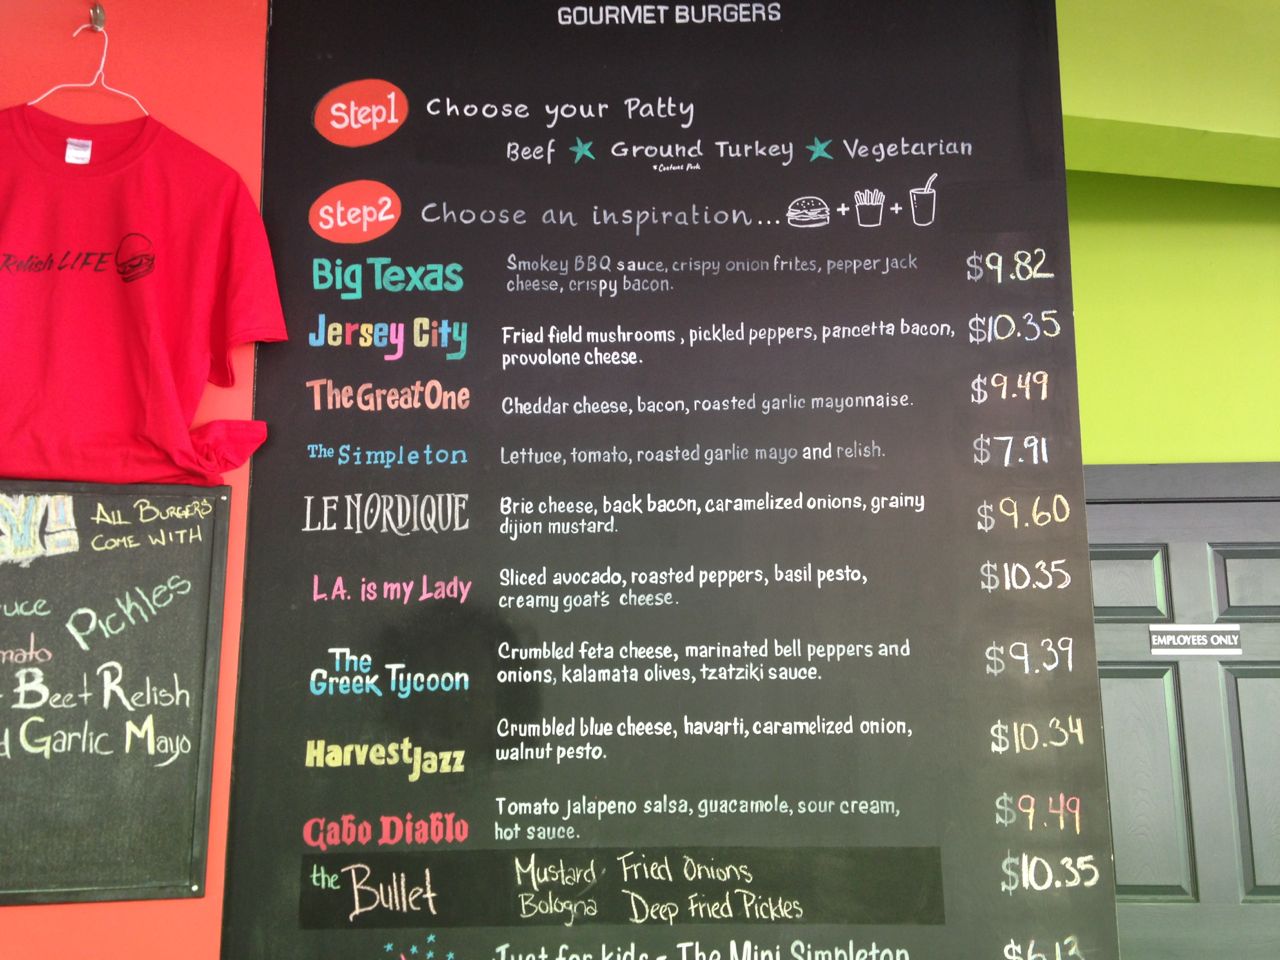 GOURMET BURGERS
Step1 Choose your Patty
Beef Ground Turkey Vegetarian
* Contains Pork
Step2 Choose an inspiration...
+ +
Big Texas Smokey BBQ sauce, crispy onion frites, pepper jack $9.82
cheese, crispy bacon.
Jersey City Fried field mushrooms, pickled peppers, pancetta bacon, $10.35
provolone cheese.
The Great One Cheddar cheese, bacon, roasted garlic mayonnaise. $9.49
The Simpleton Lettuce, tomato, roasted garlic mayo and relish. $7.91
LE NORDIQUE Brie cheese, back bacon, caramelized onions, grainy $9.60
dijion mustard.
L.A. is my Lady Sliced avocado, roasted peppers, basil pesto, $10.35
creamy goat's cheese.
The Greek Tycoon Crumbled feta cheese, marinated bell peppers and $9.39
onions, kalamata olives, tzatziki sauce.
Harvest Jazz Crumbled blue cheese, havarti, caramelized onion, $10.34
walnut pesto.
Cabo Diablo Tomato jalapeno salsa, guacamole, sour cream, $9.49
hot sauce.
the Bullet Mustard Fried Onions $10.35
Bologna Deep Fried Pickles
Just for kids - The Mini Simpleton $6.12
Relish LIFE
ALL BURGERS
COME WITH
Pickles
Beet Relish
Garlic Mayo
EMPLOYEES ONLY